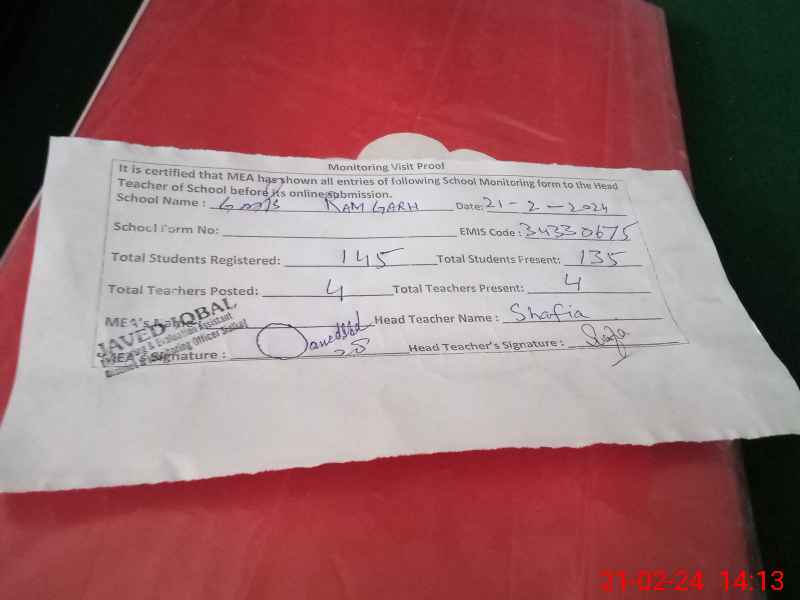 Monitoring Visit Proof
It is certified that MEA has shown all entries of following School Monitoring form to the Head
Teacher of School before its online submission.
School Name : RAM GARH Date: 21-2-2024
School Form No: EMIS Code : 34330675
Total Students Registered: 145 Total Students Present: 135
Total Teachers Posted: 4 Total Teachers Present: 4
MEA's Name Head Teacher Name : Shafia
JAVED IQBAL
Monitoring & Evaluation Assistant
MEA's Signature : Head Teacher's Signature :
21-02-24 14:13